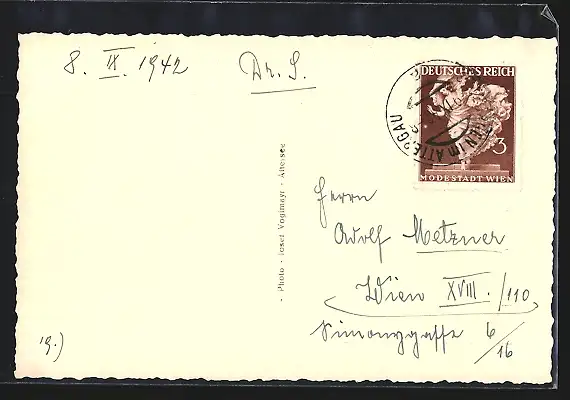 8. IX. 1942
Dr. S.
DEUTSCHES REICH
3
MODESTADT WIEN
IM ATTERGAU
Photo - Josef Voglmayr - Attersee
Herrn
Adolf Metzner
Wien XVIII./110
Simonygasse 6/16
19.)